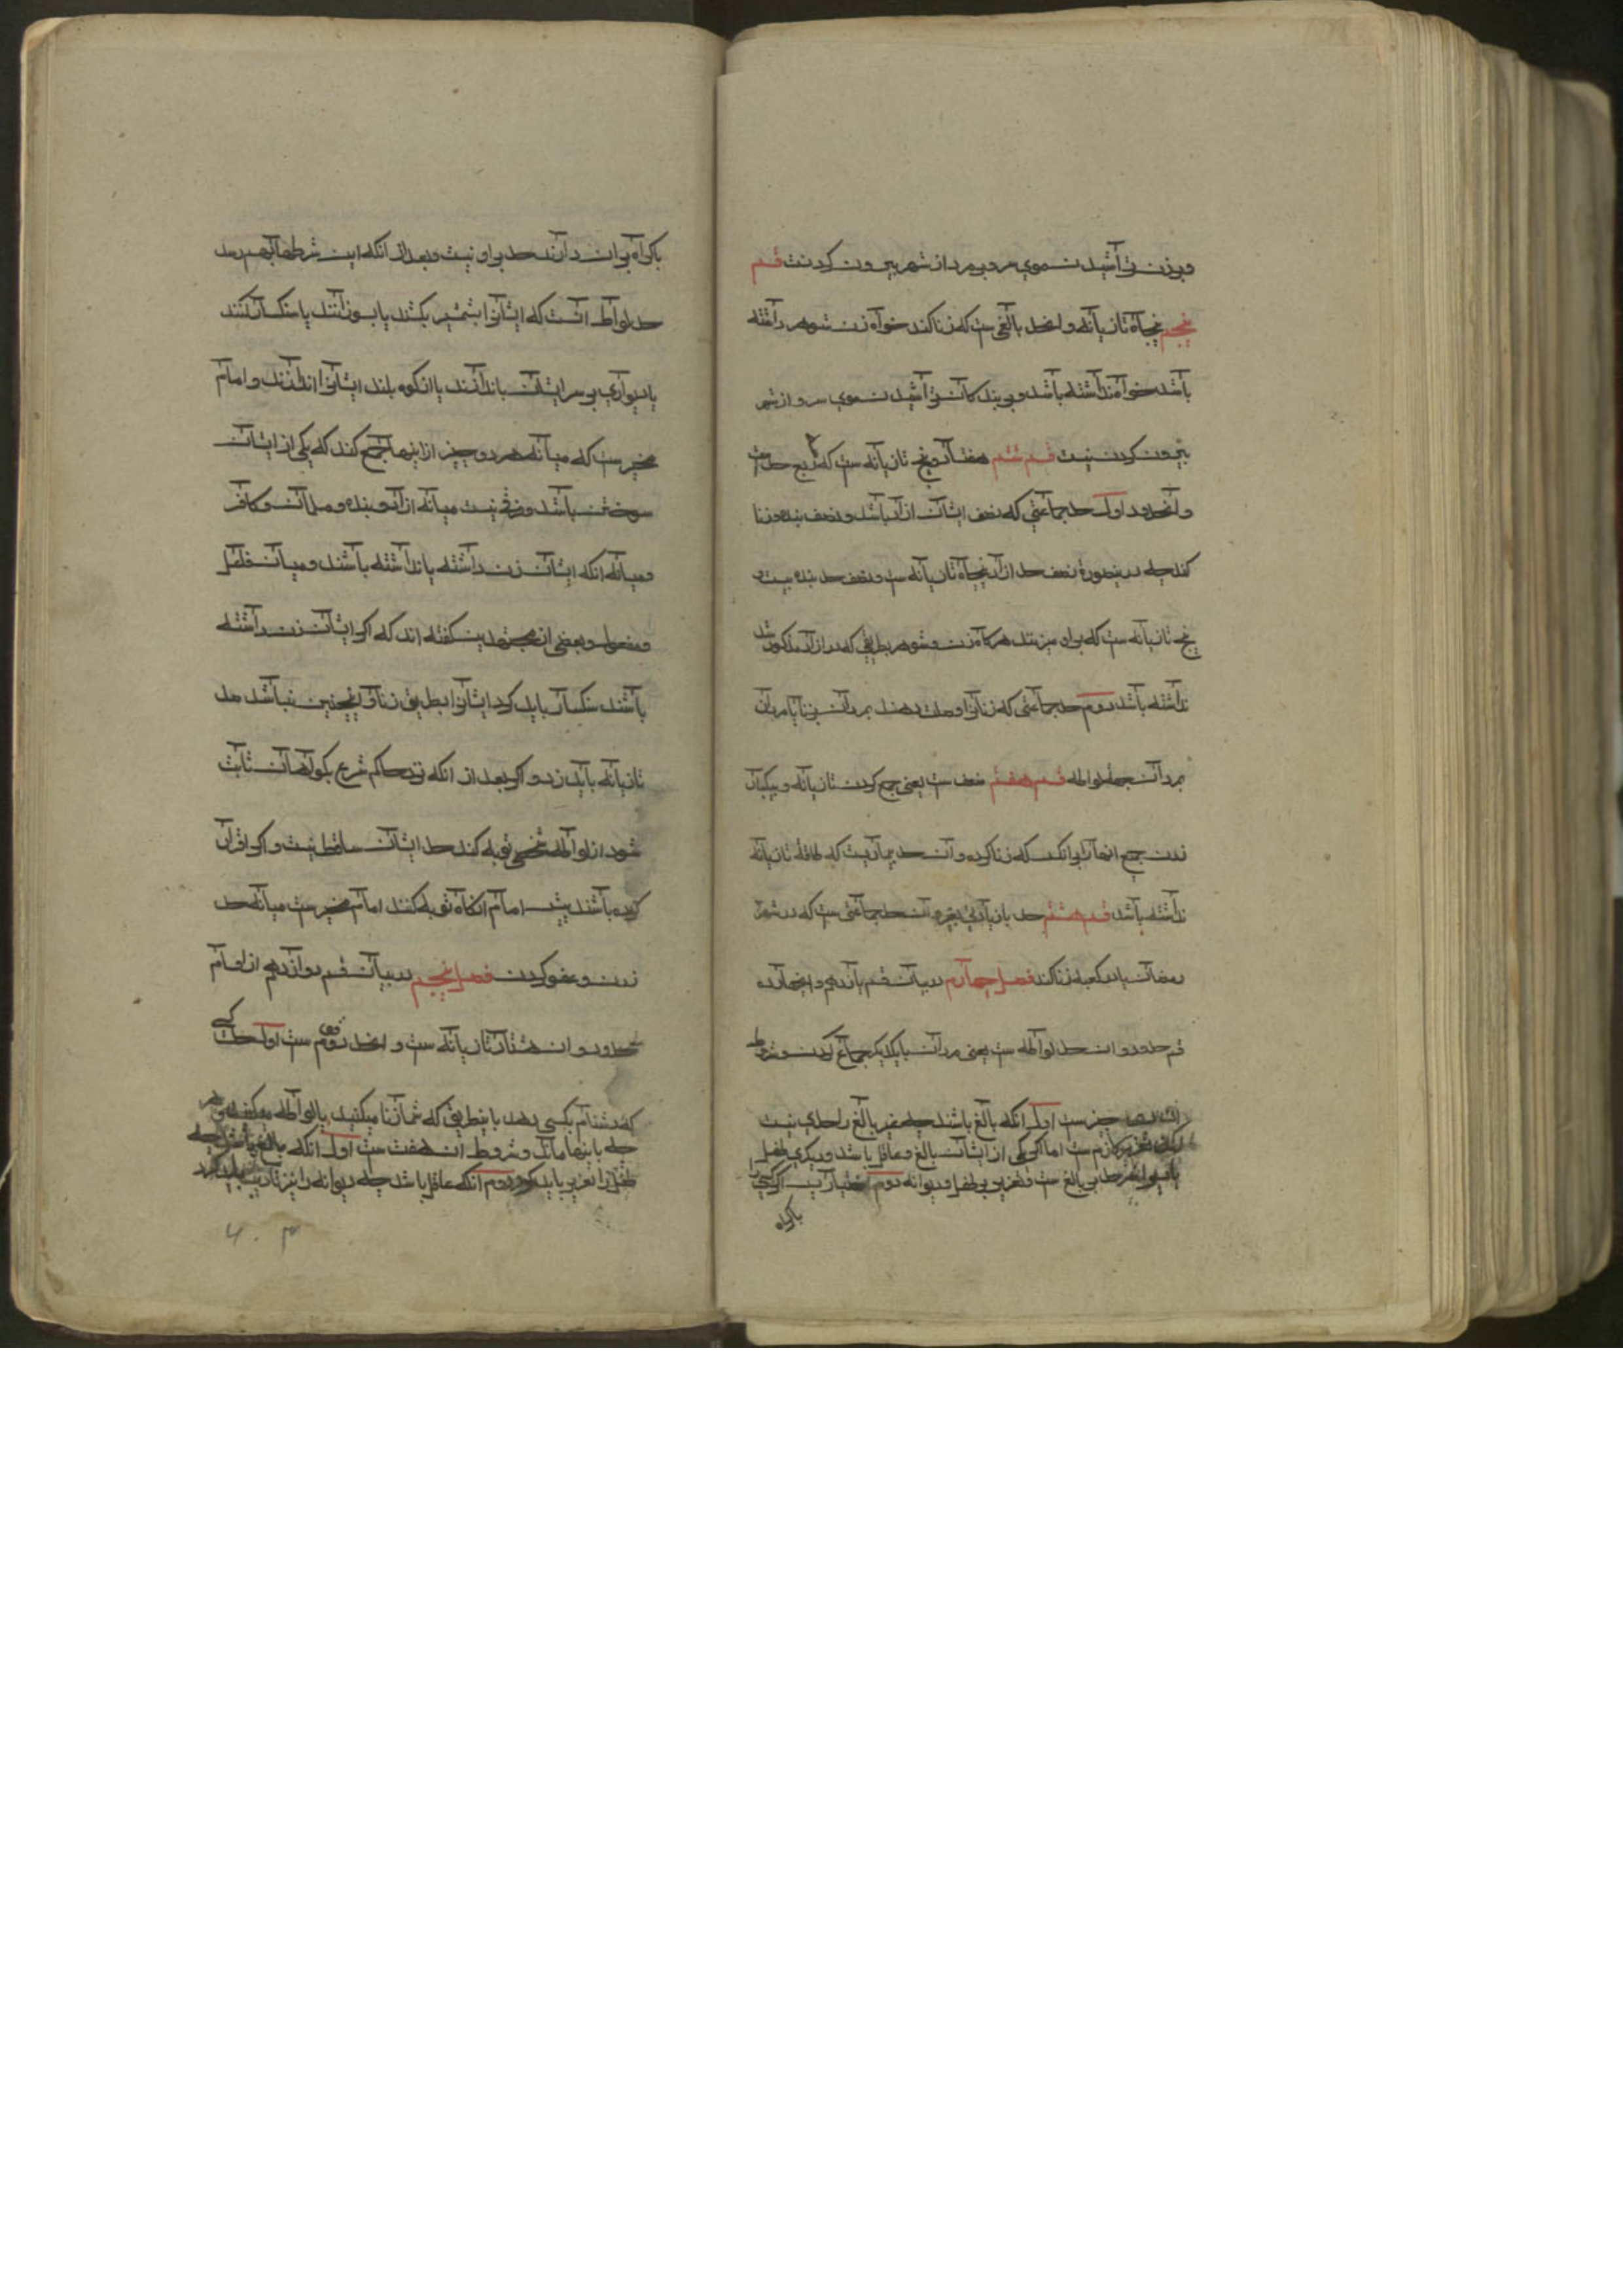 و بر زن تراشیدن موی سر و بر مرد از شهر بیرون کردن نیست قسم
پنجم پنجاه تازیانه و این حد بالغی ست که زنا کند خواه زن شوهر داشته
باشد خواه نداشته باشد و بر بندگان تراشیدن موی سر و از شهر
بیرون کردن نیست قسم ششم هفتاد و پنج تازیانه ست که ربع حد است
و این حد دو اول حد جماعتی که نصف ایشان ازاد باشد و نصف بنده و زنا
کند چه درینصورة نصف حد ازاد پنجاه تازیانه ست و نصف حد بنده بیست و
پنج تازیانه ست که بر او میزنند هرگاه زن و شوهر بطریقی که در ازاد مذکور شد
نداشته باشد دوم حد جماعتی که زنانرا وصلت دهند بمردان بزنا یا مردان
بمردان بجهة لواطه قسم هفتم ضغث ست یعنی جمع کردن تازیانه و بیکبار
زدن جمیع انها را بر انکس که زنا کرده و آن حد بیماریست که طاقة تازیانه
نداشته باشد قسم هشتم حد با زیادتی تعزیر و آن حد جماعتی ست که در شهر
رمضان یا در کعبه زنا کند فصل چهارم در بیان قسم یازدهم و
قسم حدود و ان حد لواطه ست یعنی مردان با یکدیگر جماع کردن و شروط
ان چیز ست اول انکه بالغ باشند چه غیر بالغ را حدی نیست
لیکن تعزیر لازم ست اما اگر یکی از ایشان بالغ و عاقل باشد و دیگری طفل
یا دیوانه حد بر بالغ ست و تعزیر بر طفل و دیوانه دوم اختیار پس اگر کسی را
باکراه
باکراه بر ان دارند حد بر او نیست و بعد از انکه این شرطها بهم رسد
حد لواط انست که ایشانرا بشمشیر بکشند یا بسوزانند یا سنکسار کنند
یا دیواری بر سر ایشان باندازند یا از کوه بلند ایشانرا اندازند و امام
مخیر ست که میانه هر دو چیز از اینها جمع کند که یکی از ایشان
سوختن باشد و فرقی نیست میانه ازاد و بنده و مسلمان و کافر
و میانه انکه ایشان زن داشته یا نداشته باشند و میان فاعل
و مفعول و بعضی از مجتهدین گفته اند که اگر ایشان زن داشته
باشند سنکسار باید کرد ایشانرا بطریق زنا و اگر اینچنین نباشد صد
تازیانه باید زد و اگر بعد از انکه نزد حاکم شرع بگواهان ثابت
شود از لواطه شخصی توبه کند حد ایشان ساقط نیست و اگر اقرار
کرده باشند پیش امام انگاه توبه کنند امام مخیر ست میانه حد
زدن و عفو کردن فصل پنجم در بیان قسم دوازدهم از اقسام
حدود و ان هشتاد تازیانه ست و این حد دو قسم ست اول حد کسی
که دشنام بکسی دهد باینطریق که شما زنا میکنید یا لواطه میکنید
چه باینها ماند و شروط ان هفت ست اول انکه بالغ باشد چه
طفل را تعزیر باید کرد دوم انکه عاقل باشد چه دیوانه را نیز تادیب باید کرد